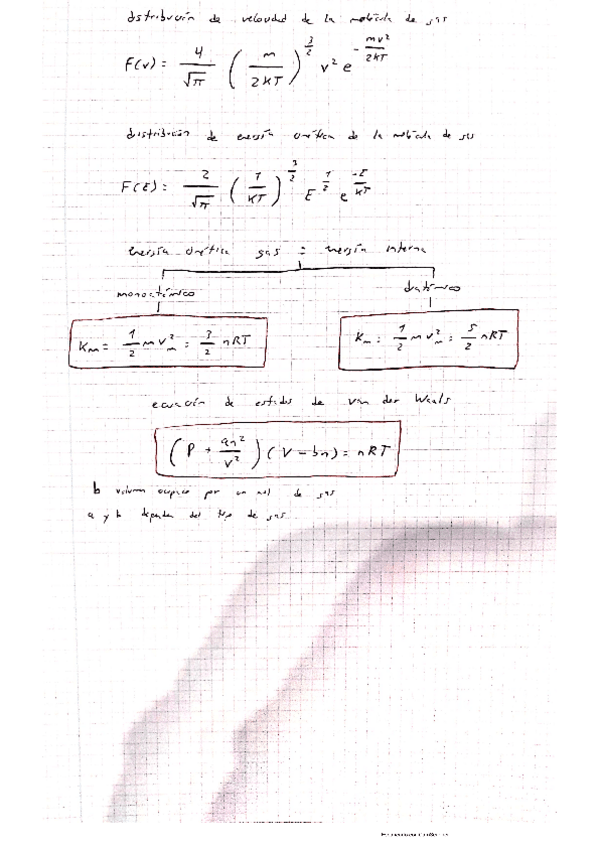 distribución de velocidad de la molécula de gas
F(v) = 4/√π (m/2KT)^3/2 v² e^-mv²/2KT
distribución de energía cinética de la molécula de gas
F(E) = 2/√π (1/KT)^3/2 E^1/2 e^-E/KT
energía cinética gas = energía interna
monoatómico
diatómico
Km = 1/2 m vm² = 3/2 nRT
Km = 1/2 m vm² = 5/2 nRT
ecuación de estados de van der Waals
(P + an²/v²) (V - bn) = nRT
b volumen ocupado por un mol de gas
a y b dependen del tipo de gas